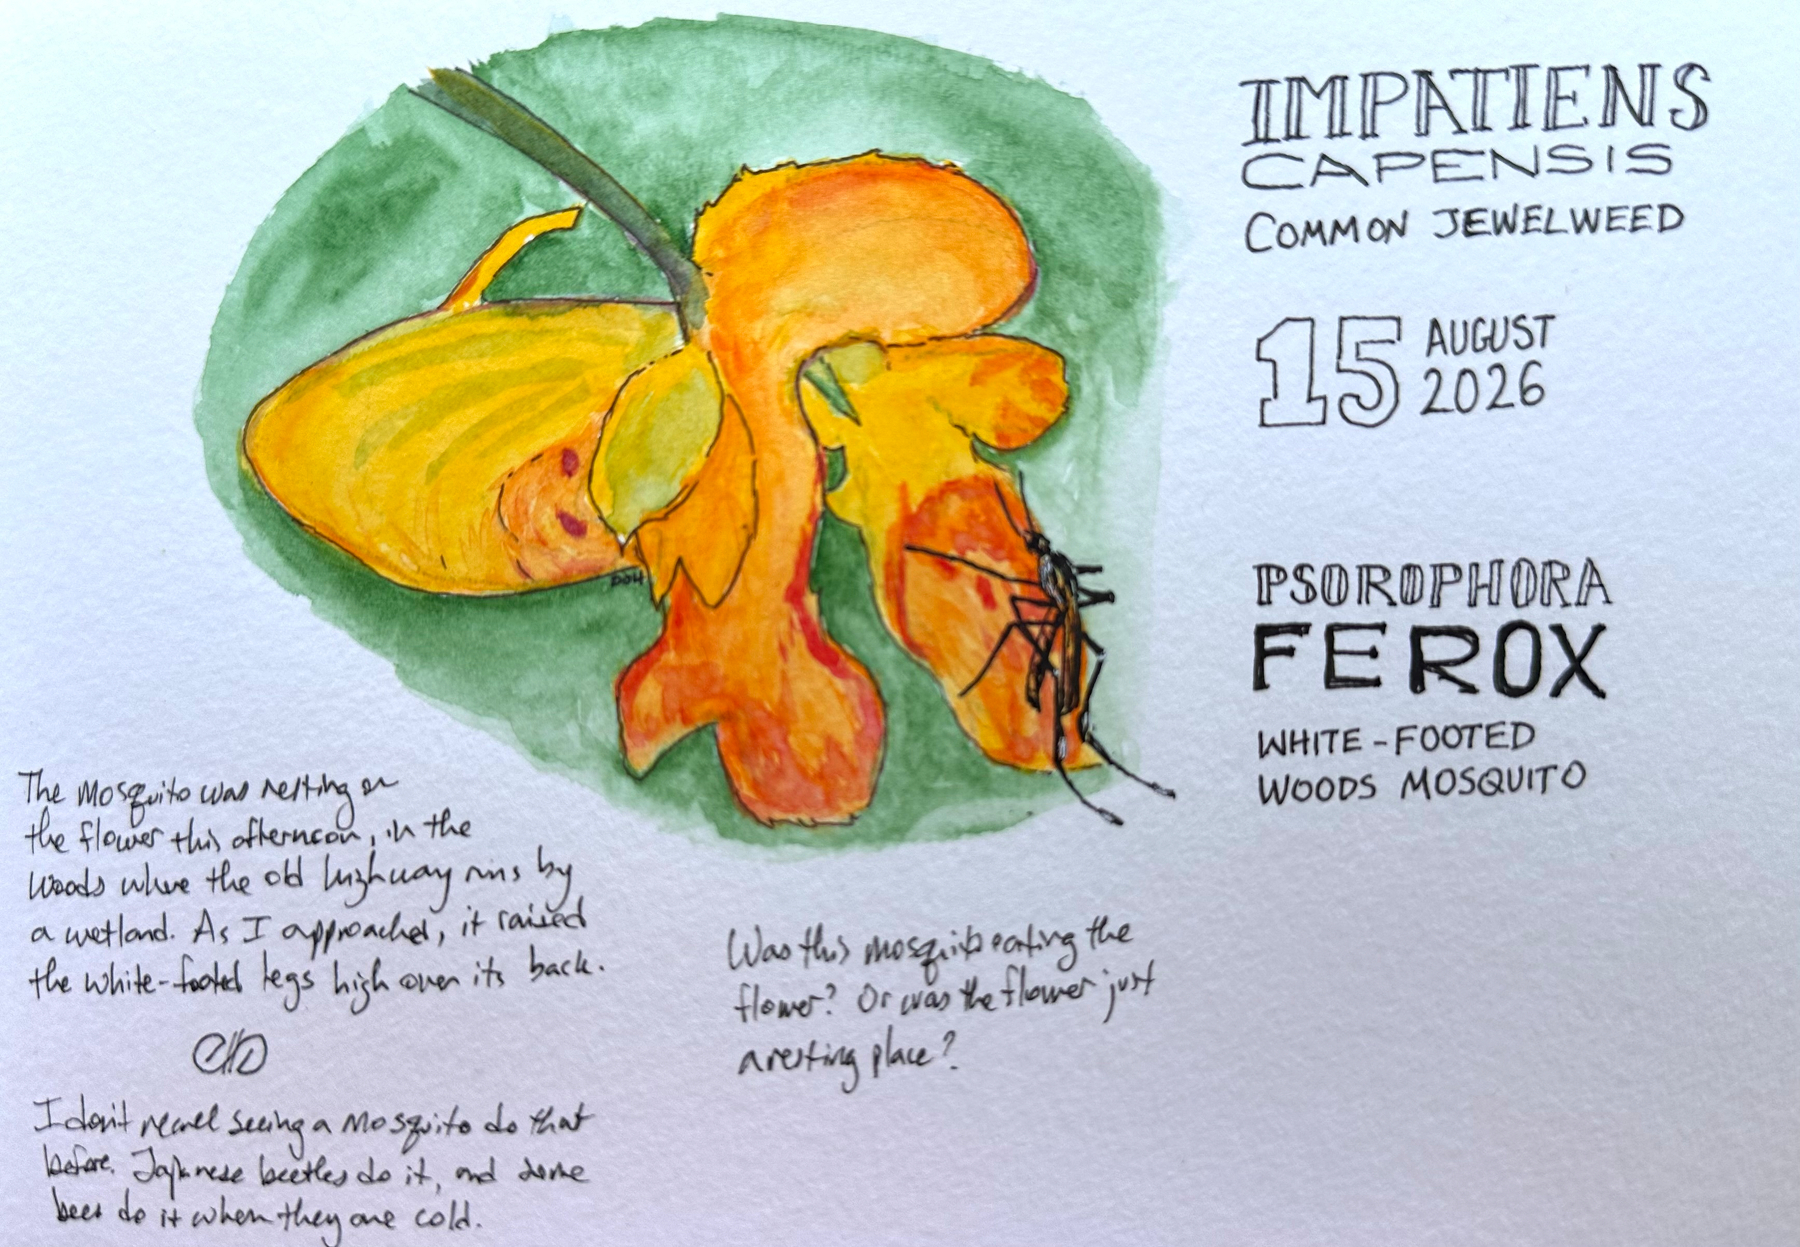 IMPATIENS
CAPENSIS
COMMON JEWELWEED
15 AUGUST
2026
PSOROPHORA
FEROX
WHITE-FOOTED
WOODS MOSQUITO
DOH
The mosquito was resting on
the flower this afternoon, in the
woods where the old highway runs by
a wetland. As I approached, it raised
the white-footed legs high over its back.
I don't recall seeing a mosquito do that
before. Japanese beetles do it, and some
bees do it when they are cold.
Was this mosquito eating the
flower? Or was the flower just
a resting place?